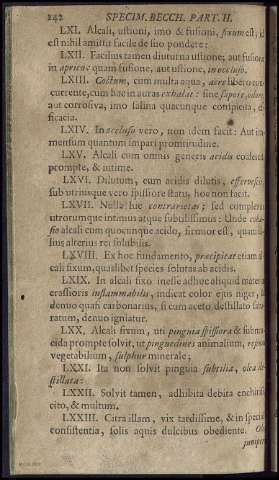 242 SPECIM. BECCH. PART. II.
LXI. Alcali, ustioni, imo & fusioni, fixum est, i.
est nihil amittit facile de suo pondere:
LXII. Facilius tamen diuturna ustione, aut fusione
in aprico: quam fusione, aut ustione, in occluso.
LXIII. Coctum, cum multa aqua, aere libero con-
currente, cum hac in auras exhalat: sine sapore, odore
aut corrosiva, imo salina quacunque conspicua, ef-
ficacia.
LXIV. In occluso vero, non idem facit: Aut im-
mensum quantum impari promtitudine.
LXV. Alcali cum omnis generis acidis coalescit
prompte, & intime.
LXVI. Dilutum, cum acidis dilutis, effervescit
sub utriusque vero spissiore statu, hoc non facit.
LXVII. Nulla hic contrarietas; sed complexus
utrorumque intimus atque subtilissimus: Unde
alcali cum quocunque acido, firmior est, quam
lius alterius rei solubilis.
LXVIII. Ex hoc fundamento, præcipitat etiam al-
cali fixum, quaslibet species solutas ab acidis.
LXIX. In alcali fixo inesse adhuc aliquid materiæ
crassioris inflammabilis, indicat color ejus niger,
denuo quasi carbonarius, si cum aceto destillato satu-
ratum, denuo igniatur.
LXX. Alcali fixum, uti pinguia spissiora & subra-
cida prompte solvit, ut pinguedines animalium,
vegetabilium, sulphur minerale;
LXXI. Ita non solvit pinguia subtilia, olea de-
stillata:
LXXII. Solvit tamen, adhibita debita encheiresi
cito, & multum.
LXXIII. Citra illam, vix tardissime, & in specie
consistentia, solis aquis dulcibus obediente.